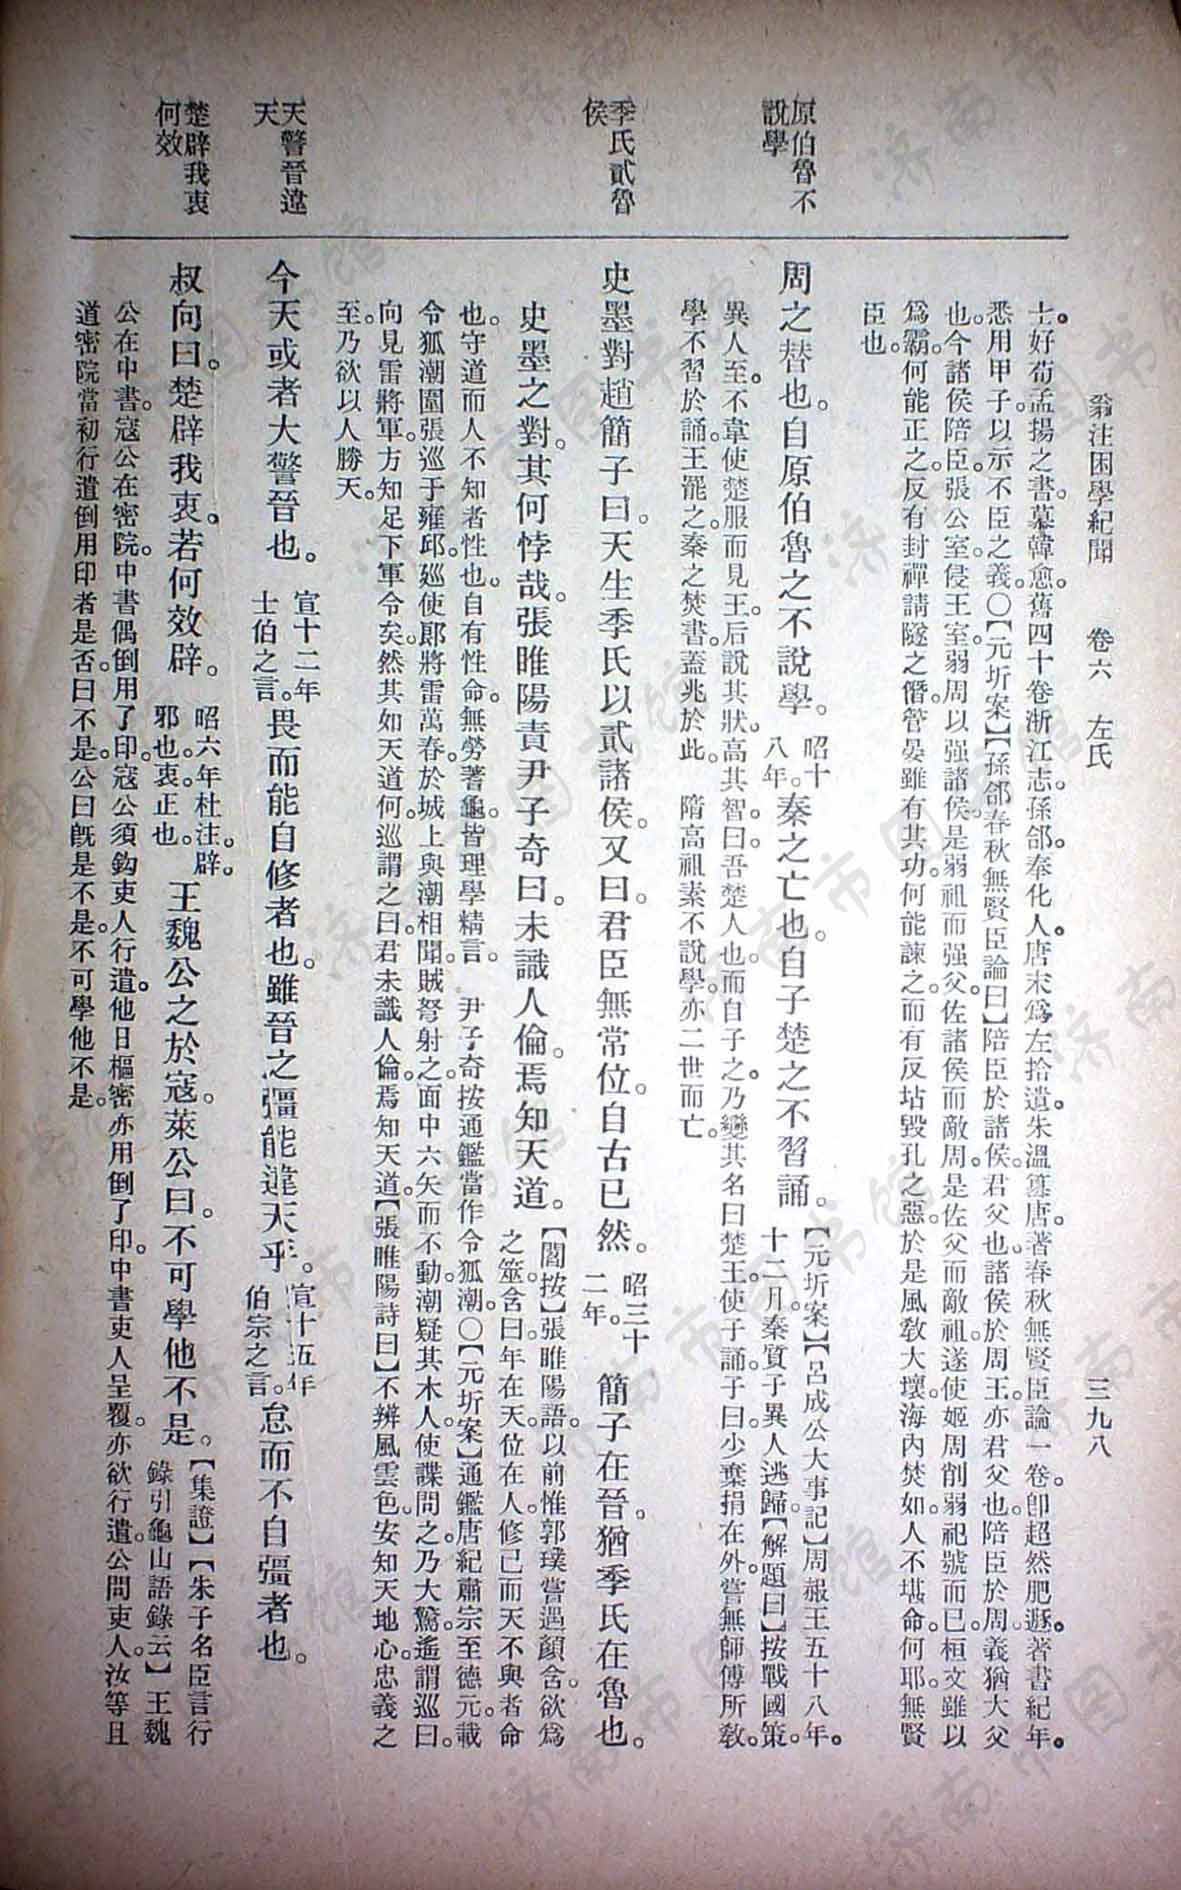 翁注困學紀聞　卷六　左氏　三九八
士好荀孟揚之書。慕韓愈。舊四十卷浙江志。孫郃。奉化人。唐末爲左拾遺。朱溫簒唐。著春秋無賢臣論一卷。卽超然肥遯。著書紀年。
悉用甲子。以示不臣之義。〇【元圻案】【孫郃春秋無賢臣論曰】陪臣於諸侯。君父也。諸侯於周王。亦君父也。陪臣於周。義猶大父
也。今諸侯陪臣。張公室。侵王室。弱周以强諸侯。是弱祖而强父。佐諸侯而敵周。是佐父而敵祖。遂使姬周削弱。祀號而已。桓文雖以
爲霸。何能正之。反有封禪請隧之僭。管晏雖有其功。何能諫之。而有反坫毀孔之惡。於是風敎大壞。海內焚如。人不堪命。何耶。無賢
臣也。
原伯魯不
說學
周之替也。自原伯魯之不說學。昭十
八年。秦之亡也。自子楚之不習誦。【元圻案】【呂成公大事記】周赧王五十八年。
十二月。秦質子異人逃歸。【解題曰】按戰國策。
異人至。不韋使楚服而見。王后說其狀。高其智。曰。吾楚人也。而自子之。乃變其名曰楚。王使子誦。子曰。少棄捐在外。嘗無師傅所敎
學。不習於誦。王罷之。秦之焚書。蓋兆於此。　隋高祖素不說學。亦二世而亡。
季氏貳魯
侯
史墨對趙簡子曰。天生季氏。以貳諸侯。又曰。君臣無常位。自古已然。昭三十
二年。　簡子在晉。猶季氏在魯也。
史墨之對。其何悖哉。張睢陽責尹子奇曰。未識人倫。焉知天道。【閻按】張睢陽語。以前惟郭璞嘗過顏含。欲爲
之筮。含曰。年在天。位在人。修已而天不與者。命
也。守道而人不知者。性也。自有性命。無勞蓍龜。皆理學精言。　尹子奇。按通鑑當作令狐潮。〇【元圻案】通鑑唐紀。肅宗至德元載
令狐潮圍張巡于雍邱。廵使郞將雷萬春於城上與潮相聞。賊弩射之。面中六矢而不動。潮疑其木人。使諜問之。乃大驚。遙謂巡曰。
向見雷將軍。方知足下軍令矣。然其如天道何。巡謂之曰。君未識人倫。焉知天道。【張睢陽詩曰】不辨風雲色。安知天地心。忠義之
至。乃欲以人勝天。
天警晉違
天
今天或者大警晉也。宣十二年
士伯之言。畏而能自修者也。雖晉之彊。能違天乎。宣十五年
伯宗之言。怠而不自彊者也。
楚辟我衷
何效
叔向曰。楚辟我衷。若何效辟。昭六年杜注。辟。
邪也。衷。正也。王魏公之於寇。萊公曰。不可學他不是。【集證】【朱子名臣言行
錄引龜山語錄云】王魏
公在中書。寇公在密院。中書偶倒用了印。寇公須鈎吏人行遣。他日樞密亦用倒了印。中書吏人呈覆。亦欲行遣。公問吏人。汝等且
道密院當初行遣倒用印者是否。曰不是。公曰。旣是不是。不可學他不是。